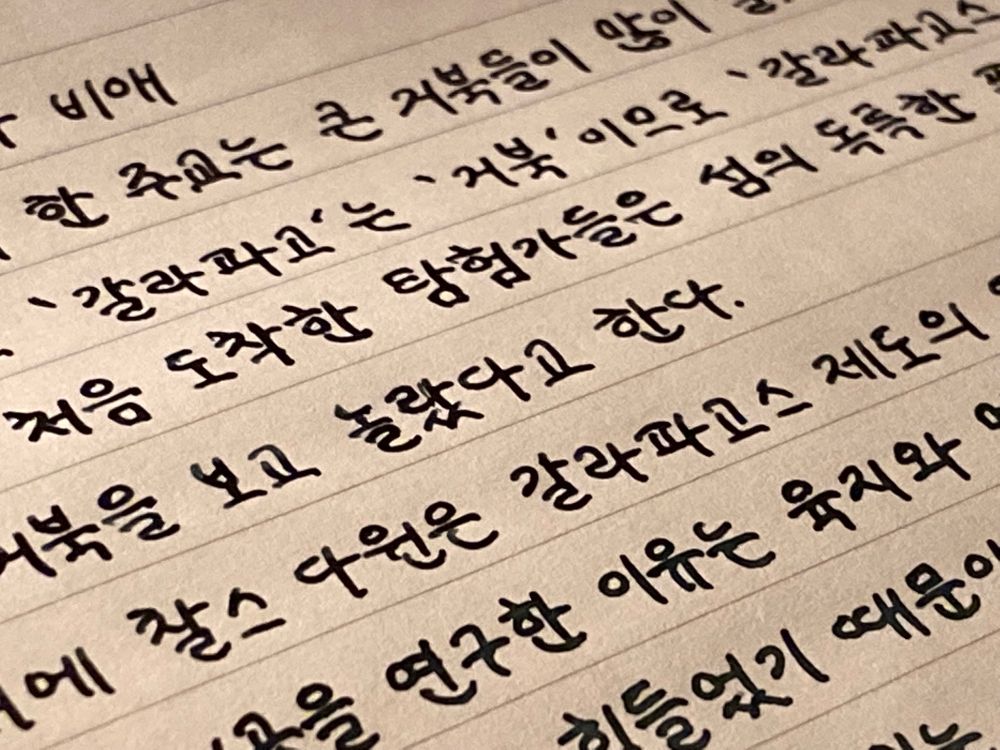 비애
한 주교는 큰 거북들이 많이
'갈라파고'는 '거북'이으로 '갈라파고스
처음 도착한 탐험가들은 섬의 독특한
거북을 보고 놀랐다고 한다.
에 찰스 다윈은 갈라파고스 제도의
을 연구한 이유는 육지와
힘들었기 때문이
는